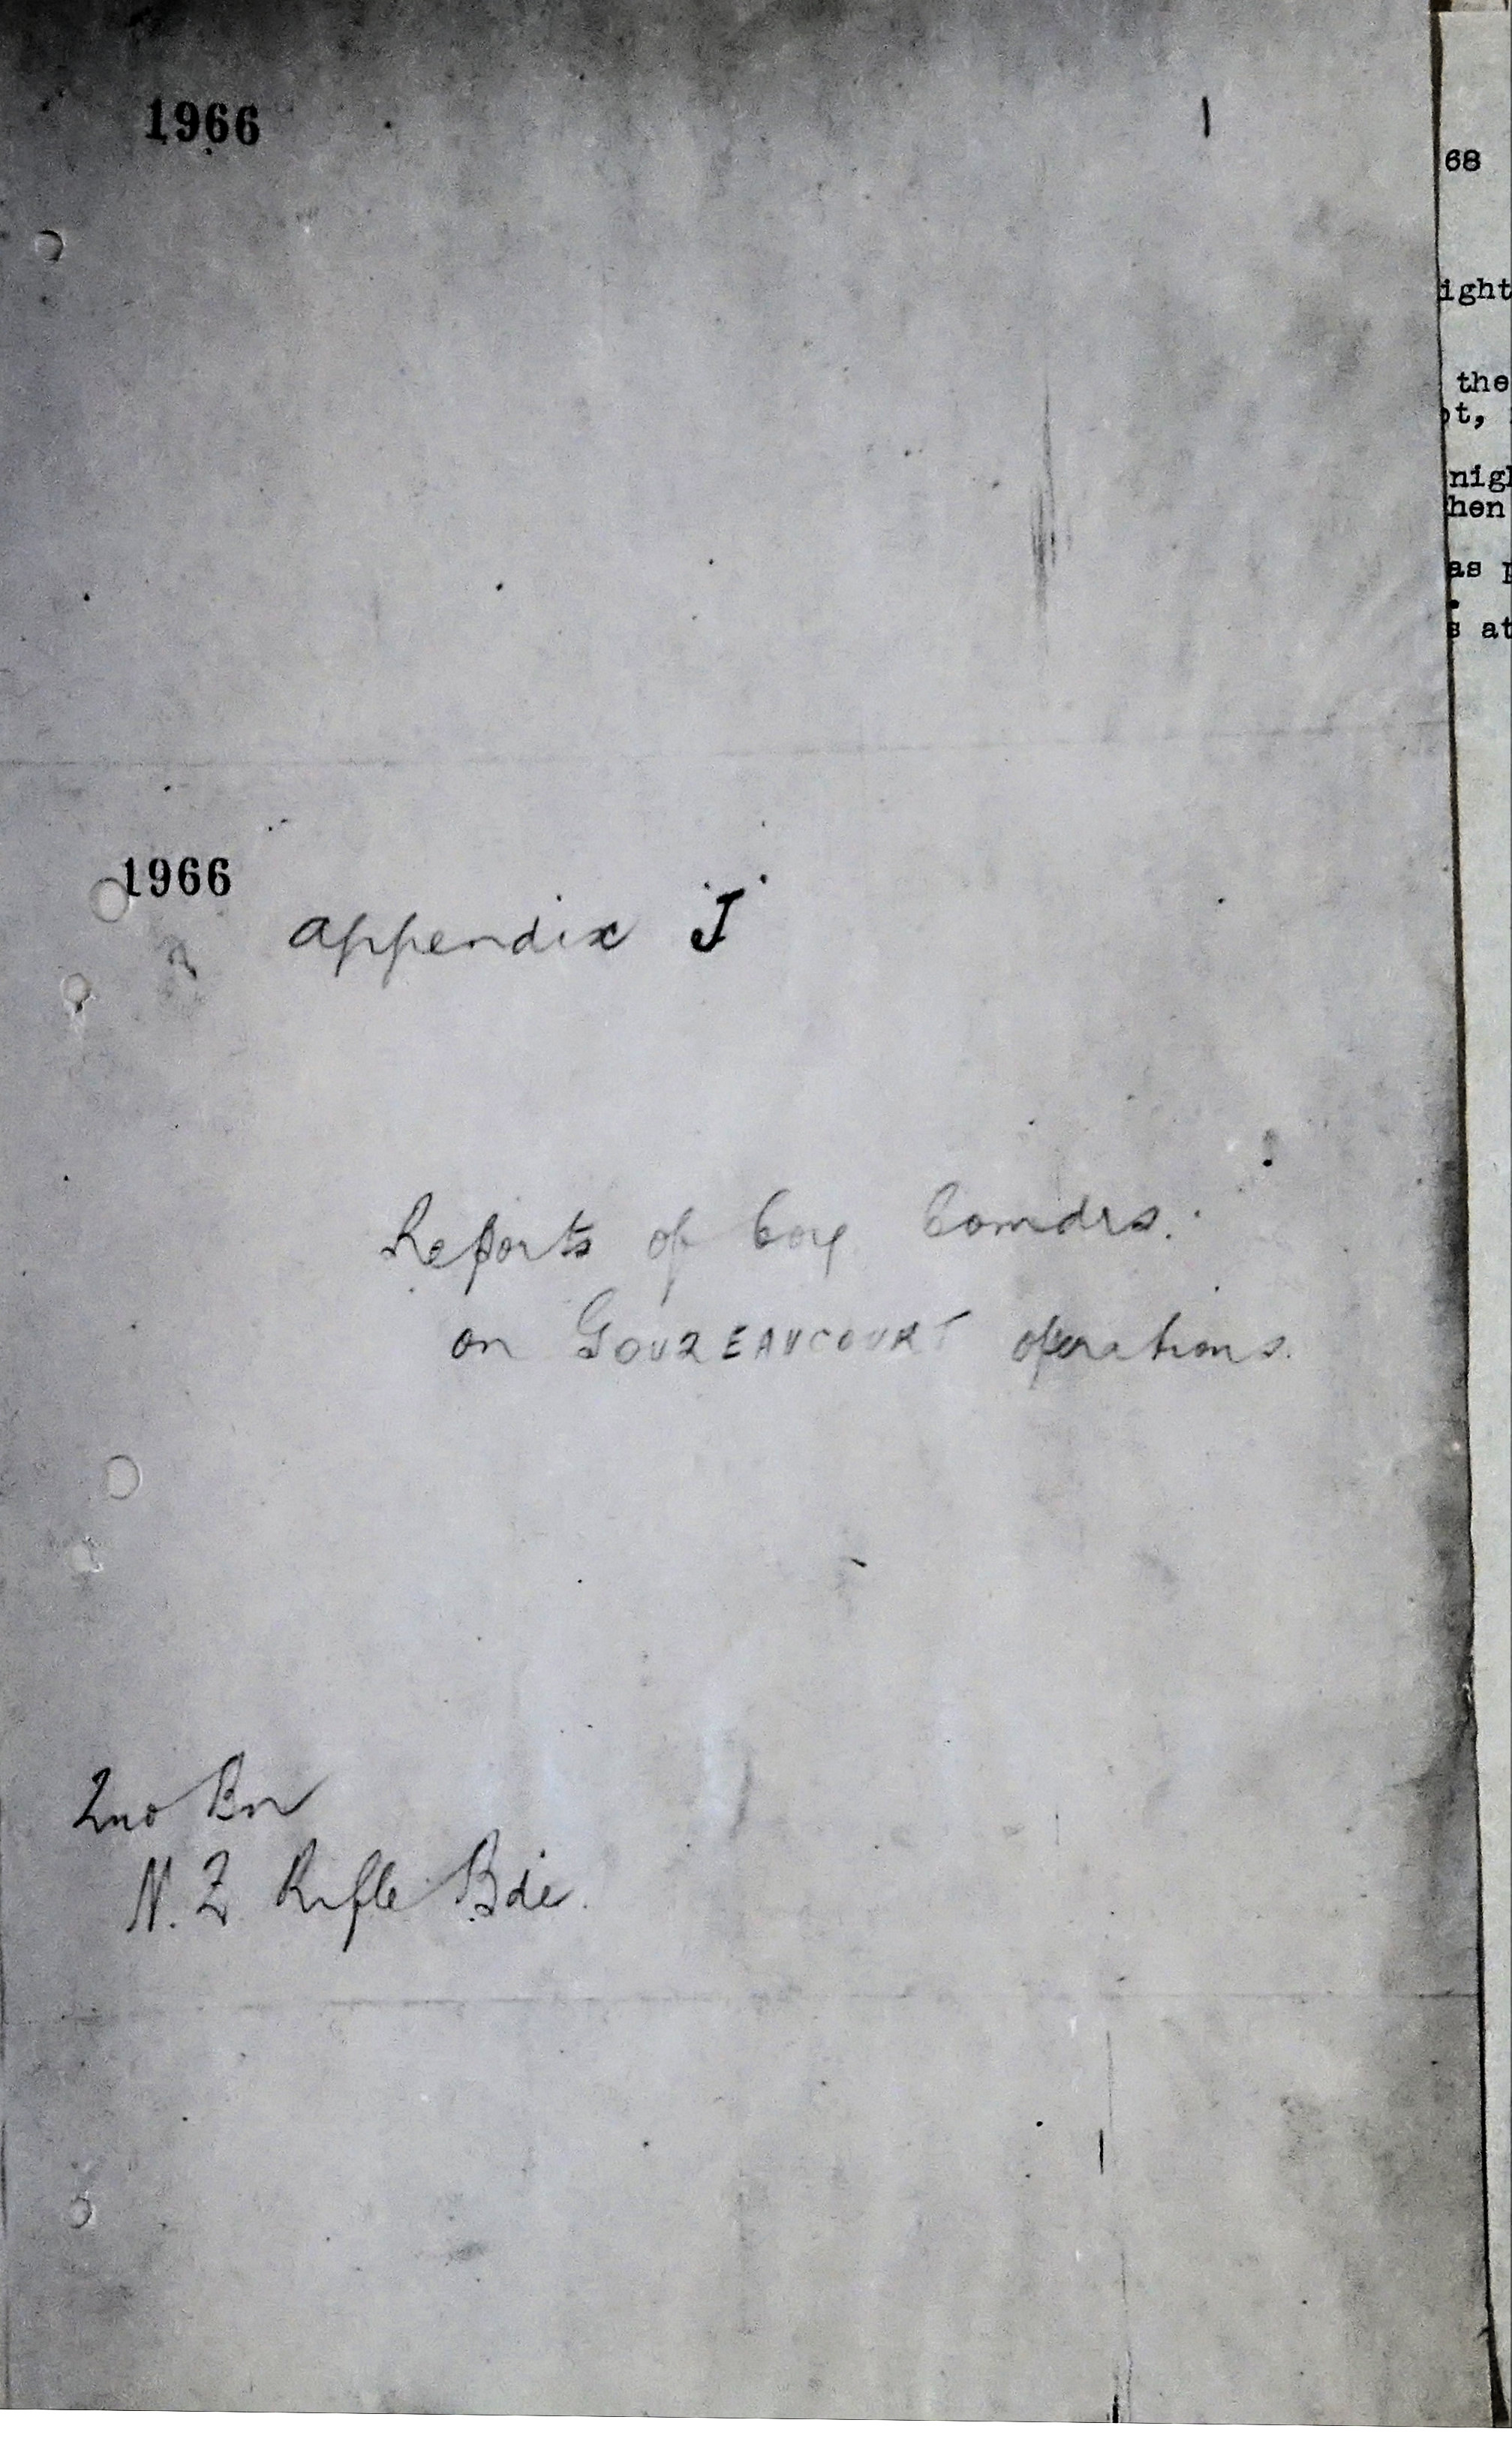 1966
68
ight
the
ot,
nigh
hen
as p
.
s at
1966
appendix J
Reports of Coy Comdrs.
on GOUZEAUCOURT operations.
2nd Bn
N. Z Rifle Bde.